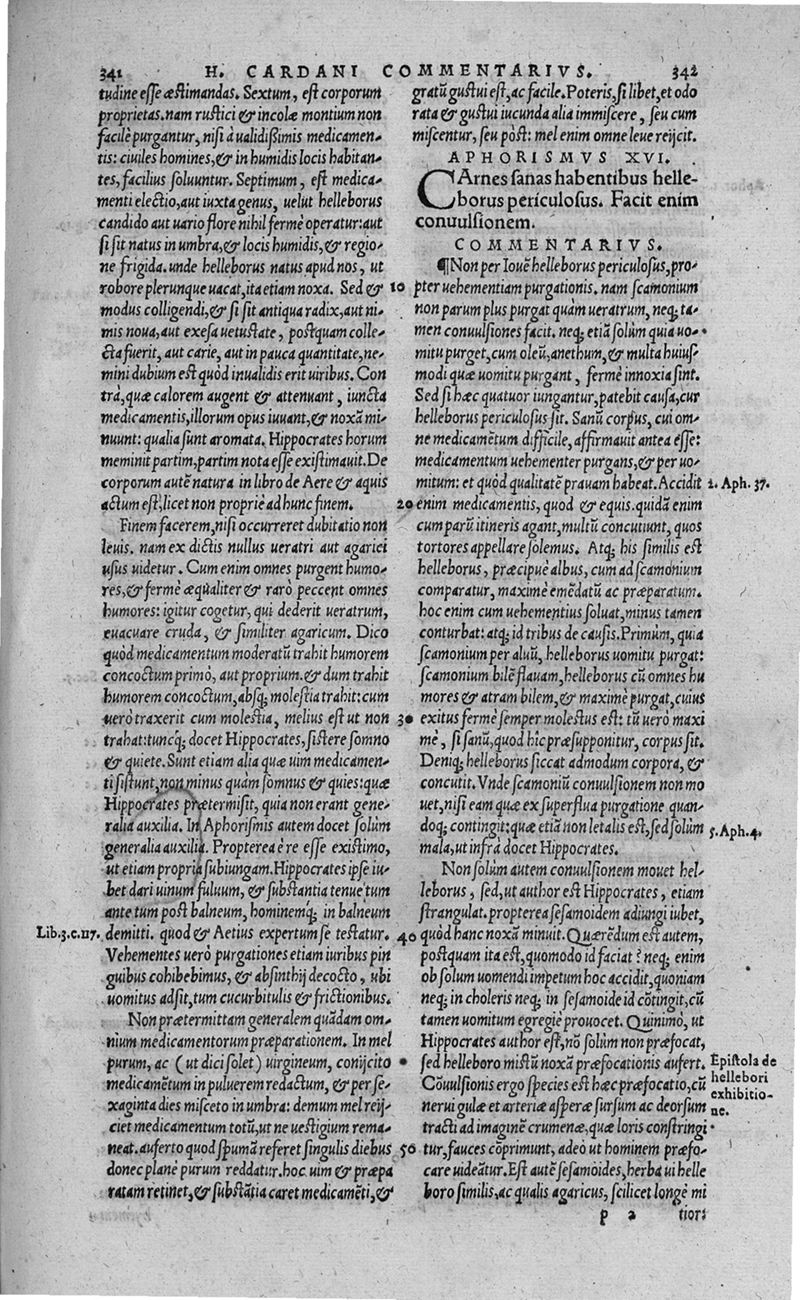 341 H. CARDANI COMMENTARIVS. 342
tudine esse æstimandas. Sextum, est corporum
proprietas. nam rustici & incolæ montium non
facilè purgantur, nisi à ualidißimis medicamen-
tis: ciuiles homines, & in humidis locis habitan-
tes, facilius soluuntur. Septimum, est medica-
menti electio, aut iuxta genus, uelut helleborus
candido aut uario flore nihil fermè operatur: aut
si sit natus in umbra, & locis humidis, & regio-
ne frigida. unde helleborus natus apud nos, ut
robore plerunque uacat, ita etiam noxa. Sed &
modus colligendi, & si sit antiqua radix, aut ni-
mis noua, aut exesa uetustate, postquam colle-
cta fuerit, aut carie, aut in pauca quantitate, ne-
mini dubium est quòd inualidis erit uiribus. Con
trà, quæ calorem augent & attenuant, iuncta
medicamentis, illorum opus iuuant, & noxã mi-
nuunt: qualia sunt aromata. Hippocrates horum
meminit partim, partim nota esse existimauit. De
corporum autẽ natura in libro de Aere & aquis
actum est, licet non propriè ad hunc finem.
Finem facerem, nisi occurreret dubitatio non
leuis. nam ex dictis nullus ueratri aut agarici
usus uidetur. Cum enim omnes purgent humo-
res, & fermè æqualiter & rarò peccent omnes
humores: igitur cogetur, qui dederit ueratrum,
euacuare cruda, & similiter agaricum. Dico
quòd medicamentum moderatũ trahit humorem
concoctum primò, aut proprium. & dum trahit
humorem concoctum, absq; molestia trahit: cum
uerò traxerit cum molestia, melius est ut non
trahat: tuncq; docet Hippocrates, sistere somno
& quiete. Sunt etiam alia quæ uim medicamen-
ti sistunt, non minus quàm somnus & quies: quæ
Hippocrates prætermisit, quia non erant gene-
ralia auxilia. In Aphorismis autem docet solùm
generalia auxilia. Propterea è re esse existimo,
ut etiam propria subiungam. Hippocrates ipse iu-
bet dari uinum fuluum, & substantia tenue tum
ante tum post balneum, hominemq; in balneum
Lib.3.c.117. demitti. quod & Aetius expertum se testatur.
Vehementes uerò purgationes etiam iuribus pin
guibus cohibebimus, & absinthij decocto, ubi
uomitus adsit, tum cucurbitulis & frictionibus.
Non prætermittam generalem quãdam om-
nium medicamentorum præparationem. In mel
purum, ac (ut dici solet) uirgineum, conijcito
medicamẽtum in puluerem redactum, & per se-
xaginta dies misceto in umbra: demum mel reij-
ciet medicamentum totũ, ut ne uestigium rema-
neat. auferto quod spumã referet singulis diebus
donec planè purum reddatur. hoc uim & præpa
ratam retinet, & substãtia caret medicamẽti, &
gratũ gustui est, ac facile. Poteris, si libet, et odo
rata & gustui iucunda alia immiscere, seu cum
miscentur, seu pòst: mel enim omne leue reijcit.
APHORISMVS XVI.
CArnes sanas habentibus helle-
borus periculosus. Facit enim
conuulsionem.
COMMENTARIVS.
¶Non per Iouẽ helleborus periculosus, pro-
10 pter uehementiam purgationis. nam scamonium
non parum plus purgat quàm ueratrum, neq; ta-
men conuulsiones facit. neq; etiã solùm quia uo-
mitu purget, cum oleũ, anethum, & multa huius-
modi quæ uomitu purgant, fermè innoxia sint.
Sed si hæc quatuor iungantur, patebit causa, cur
helleborus periculosus sit. Sanũ corpus, cui om-
ne medicamẽtum difficile, affirmauit antea esse:
medicamentum uehementer purgans, & per uo-
mitum: et quòd qualitatẽ prauam habeat. Accidit 2. Aph. 37.
20 enim medicamentis, quod & equis. quidã enim
cum parũ itineris agant, multũ concutiunt, quos
tortores appellare solemus. Atq; his similis est
helleborus, præcipuè albus, cum ad scamonium
comparatur, maximè emẽdatũ ac præparatum.
hoc enim cum uehementius soluat, minus tamen
conturbat: atq; id tribus de causis. Primùm, quia
scamonium per aluũ, helleborus uomitu purgat:
scamonium bilẽ flauam, helleborus cũ omnes hu
mores & atram bilem, & maximè purgat, cuius
30 exitus fermè semper molestus est: tũ uerò maxi
mè, si sanũ, quod hîc præsupponitur, corpus sit.
Deniq; helleborus siccat admodum corpora, &
concutit. Vnde scamoniũ conuulsionem non mo
uet, nisi eam quæ ex superflua purgatione quan-
doq; contingit: quæ etiã non letalis est, sed solùm 5. Aph. 4.
mala, ut infrà docet Hippocrates.
Non solùm autem conuulsionem mouet hel-
leborus, sed, ut author est Hippocrates, etiam
strangulat. propterea sesamoidem adiungi iubet,
40 quòd hanc noxã minuit. Quærẽdum est autem,
postquam ita est, quomodo id faciat? neq; enim
ob solum uomendi impetum hoc accidit, quoniam
neq; in choleris neq; in sesamoide id cõtingit, cũ
tamen uomitum egregiè prouocet. Quinimò, ut
Hippocrates author est, nõ solùm non præfocat,
sed helleboro mistũ noxã præfocationis aufert. Epistola de
Cõuulsionis ergo species est hæc præfocatio, cũ hellebori
nerui gulæ et arteriæ asperæ sursum ac deorsum exhibitio-
tracti ad imaginẽ crumenæ, quæ loris constringi ne.
50 tur, fauces cõprimunt, adeò ut hominem præfo-
care uideãtur. Est autẽ sesamoides, herba ui helle
boro similis, ac qualis agaricus, scilicet longè mi
p 2 tior: